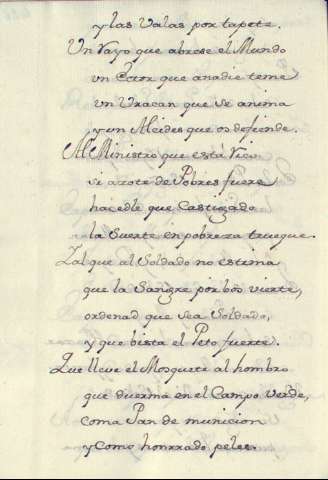 y las Valas por tapete.
Un Rayo que abrase el Mundo
un Error que a nadie teme
un Vracan que se anima
y un Alcides que os defiende.
Al Ministro que esta Rico
si azote de Pobres fuere
hacedle que Castigado
la Suerte en pobreza trueque.
Y al que al Soldado no estima
que la Sangre por bos vierte,
ordenad que sea Soldado,
y que bista el Peto fuerte.
Que lleve el Mosquete al hombro
que duerma en el Campo verde,
coma Pan de municion
y como honrrado pelee.